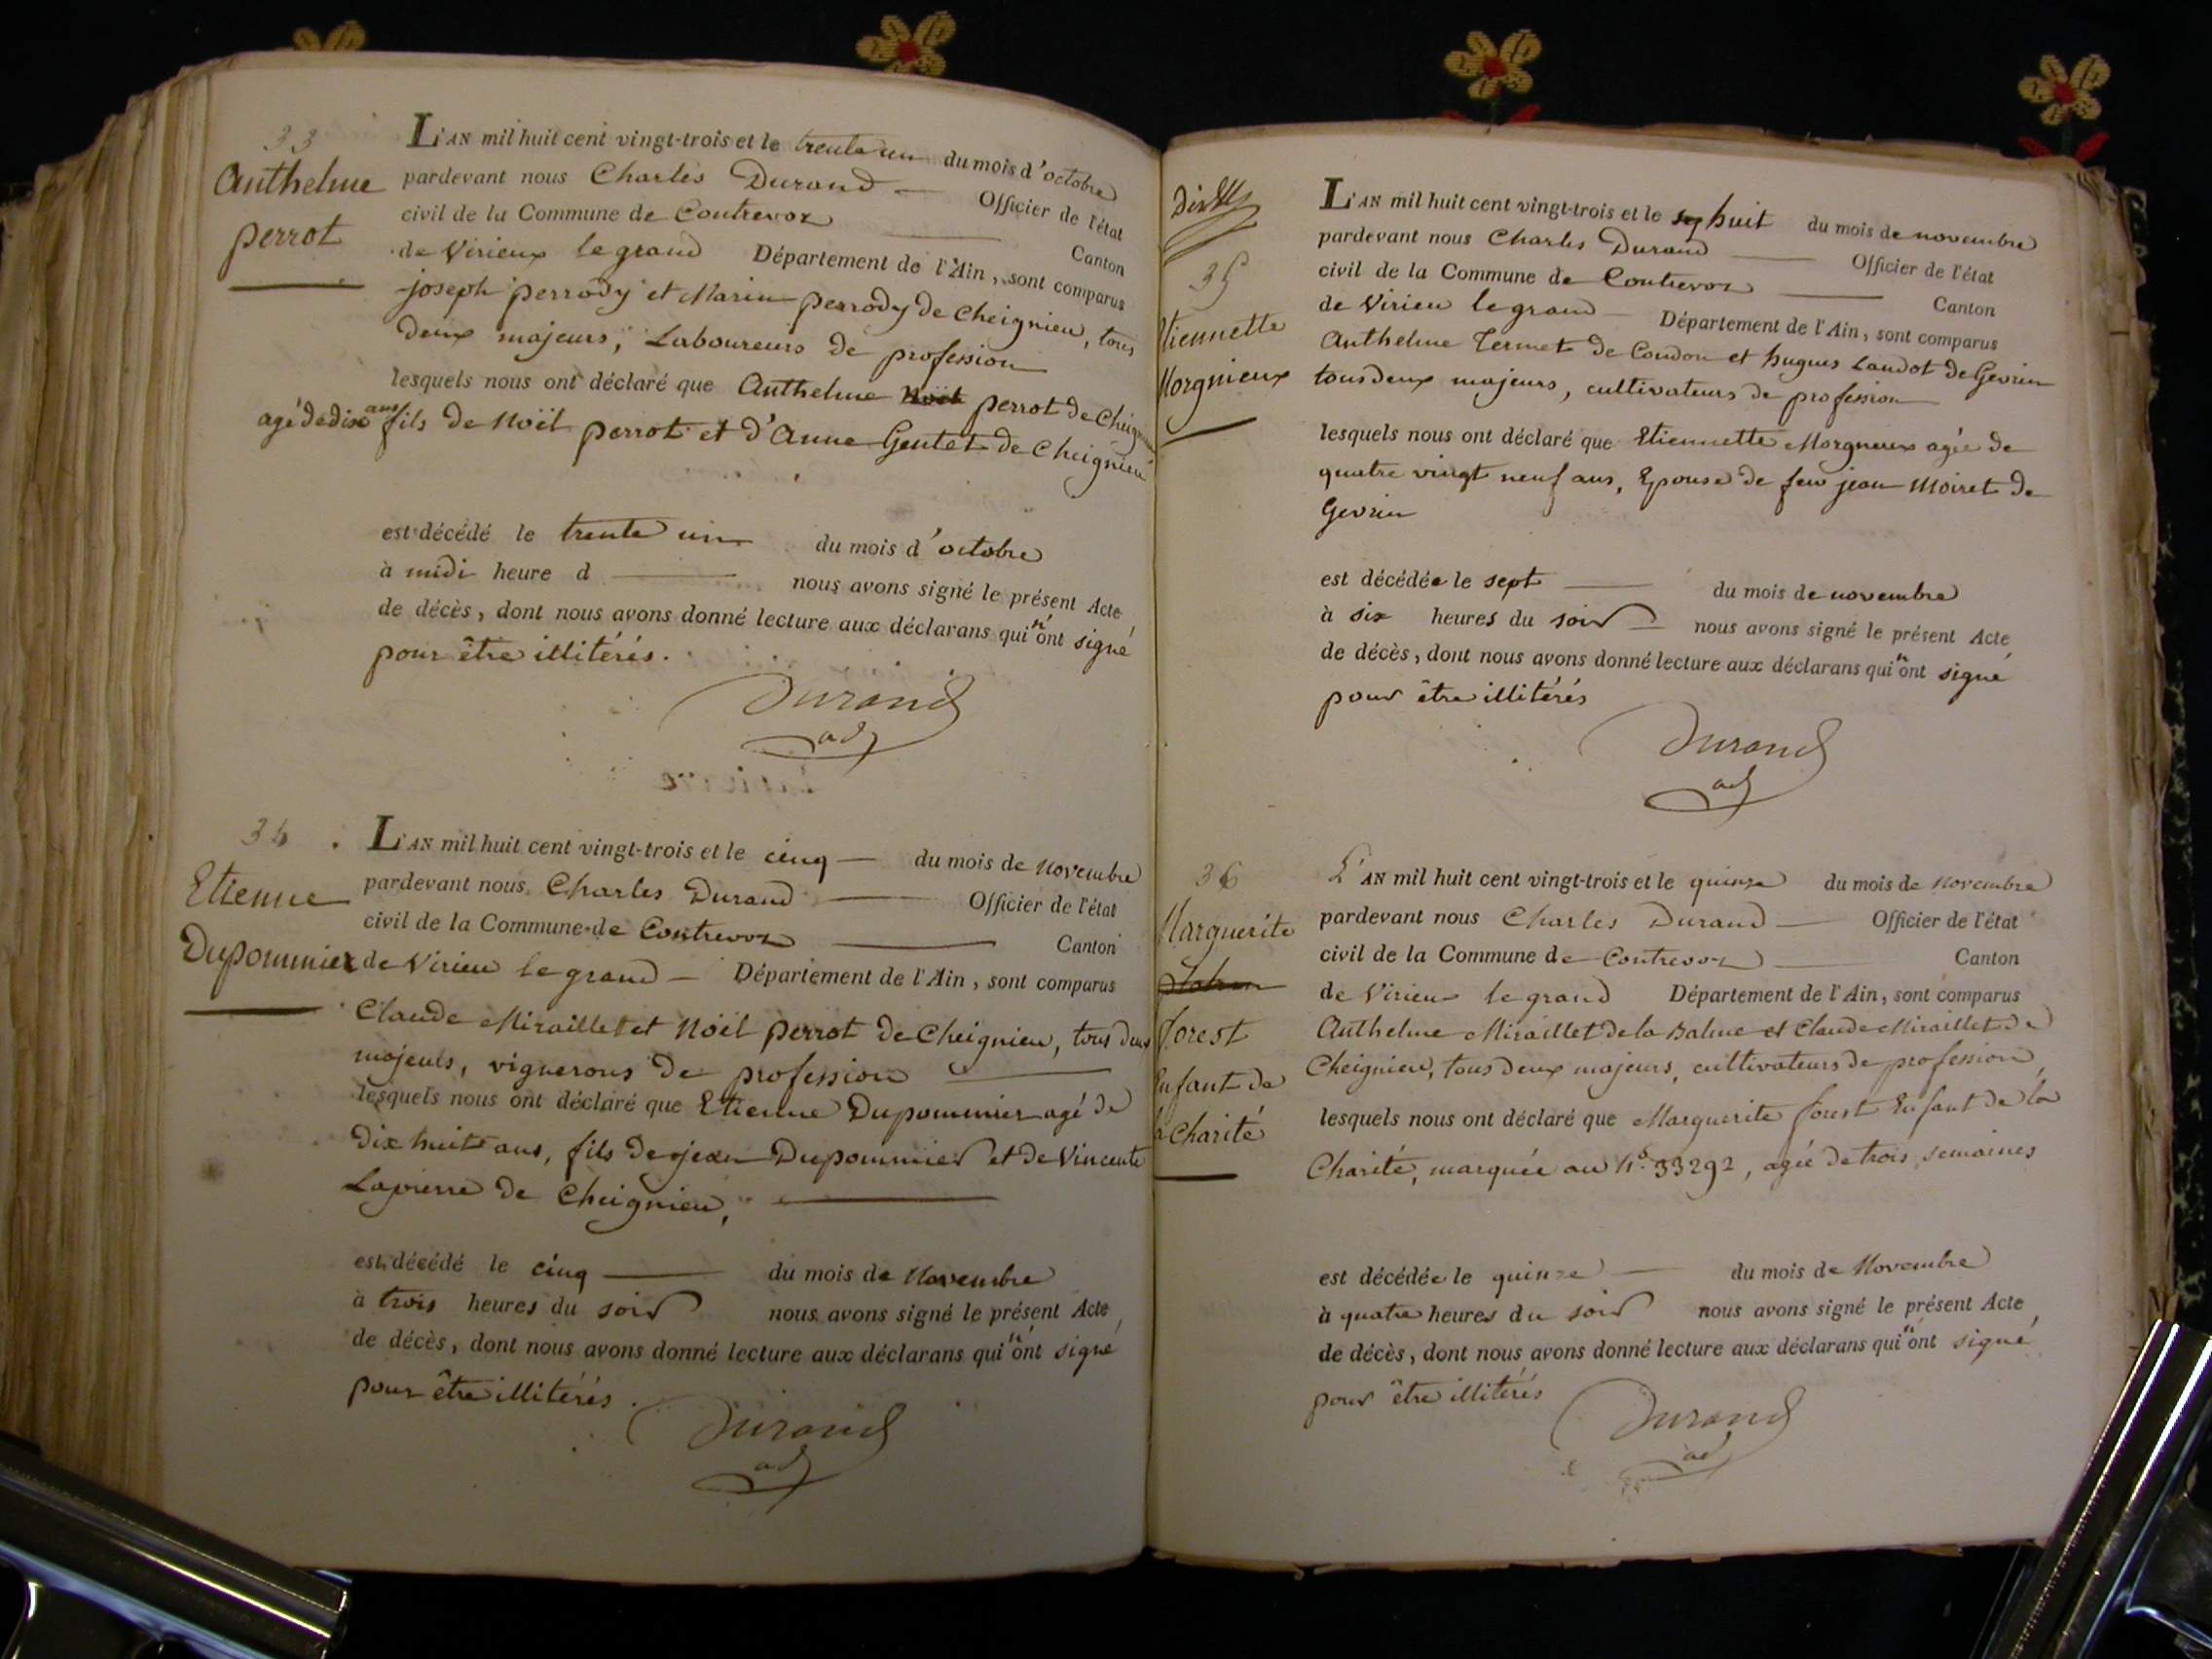 33
Anthelme
perrot
L'AN mil huit cent vingt-trois et le trente un du mois d'octobre
pardevant nous Charles Durand Officier de l'état
civil de la Commune de Contrevoz Canton
de Virieux le grand Département de l'Ain, sont comparus
joseph perrody et Marin perrody de Cheignieu, tous
deux majeurs, Laboureurs de profession
lesquels nous ont déclaré que Anthelme Noël perrot de Cheignieu
agé de dix ans fils de Noël perrot et d'Anne Gentet de Cheignieu
est décédé le trente un du mois d'octobre
à midi heure d nous avons signé le présent Acte
de décès, dont nous avons donné lecture aux déclarans qui n'ont signé
pour être illitérés.
Durand
adj
34
Etienne
Dupommier
L'AN mil huit cent vingt-trois et le cinq du mois de novembre
pardevant nous Charles Durand Officier de l'état
civil de la Commune de Contrevoz Canton
de Virieu le grand Département de l'Ain, sont comparus
Claude Miraillet et Noël perrot de Cheignieu, tous deux
majeurs, vignerons de profession
lesquels nous ont déclaré que Etienne Dupommier agé de
dix huit ans, fils de jean Dupommier et de Vincente
Lapierre de Cheignieu,
est décédé le cinq du mois de Novembre
à trois heures du soir nous avons signé le présent Acte,
de décès, dont nous avons donné lecture aux déclarans qui n'ont signé
pour être illitérés.
Durand
adj
35
Etiennette
Morgnieux
L'AN mil huit cent vingt-trois et le sep huit du mois de novembre
pardevant nous Charles Durand Officier de l'état
civil de la Commune de Contrevoz Canton
de Virieu le grand Département de l'Ain, sont comparus
Anthelme Termet de Condon et hugues Landot de Gevrin
tous deux majeurs, cultivateurs de profession
lesquels nous ont déclaré que Etiennette Morgnieux agée de
quatre vingt neuf ans, Epouse de feu jean Moiret de
Gevrin
est décédée le sept du mois de novembre
à six heures du soir nous avons signé le présent Acte
de décès, dont nous avons donné lecture aux déclarans qui n'ont signé
pour être illitérés
Durand
adj
36
Marguerite
forest
Enfant de
la Charité
L'AN mil huit cent vingt-trois et le quinze du mois de novembre
pardevant nous Charles Durand Officier de l'état
civil de la Commune de Contrevoz Canton
de Virieu le grand Département de l'Ain, sont comparus
Anthelme Miraillet de la Balme et Claude Miraillet de
Cheignieu, tous deux majeurs, cultivateurs de profession,
lesquels nous ont déclaré que Marguerite forest Enfant de la
Charité, marquée au No. 33292, agée de trois semaines
est décédée le quinze du mois de Novembre
à quatre heures du soir nous avons signé le présent Acte,
de décès, dont nous avons donné lecture aux déclarans qui n'ont signé
pour être illitérés
Durand
adj